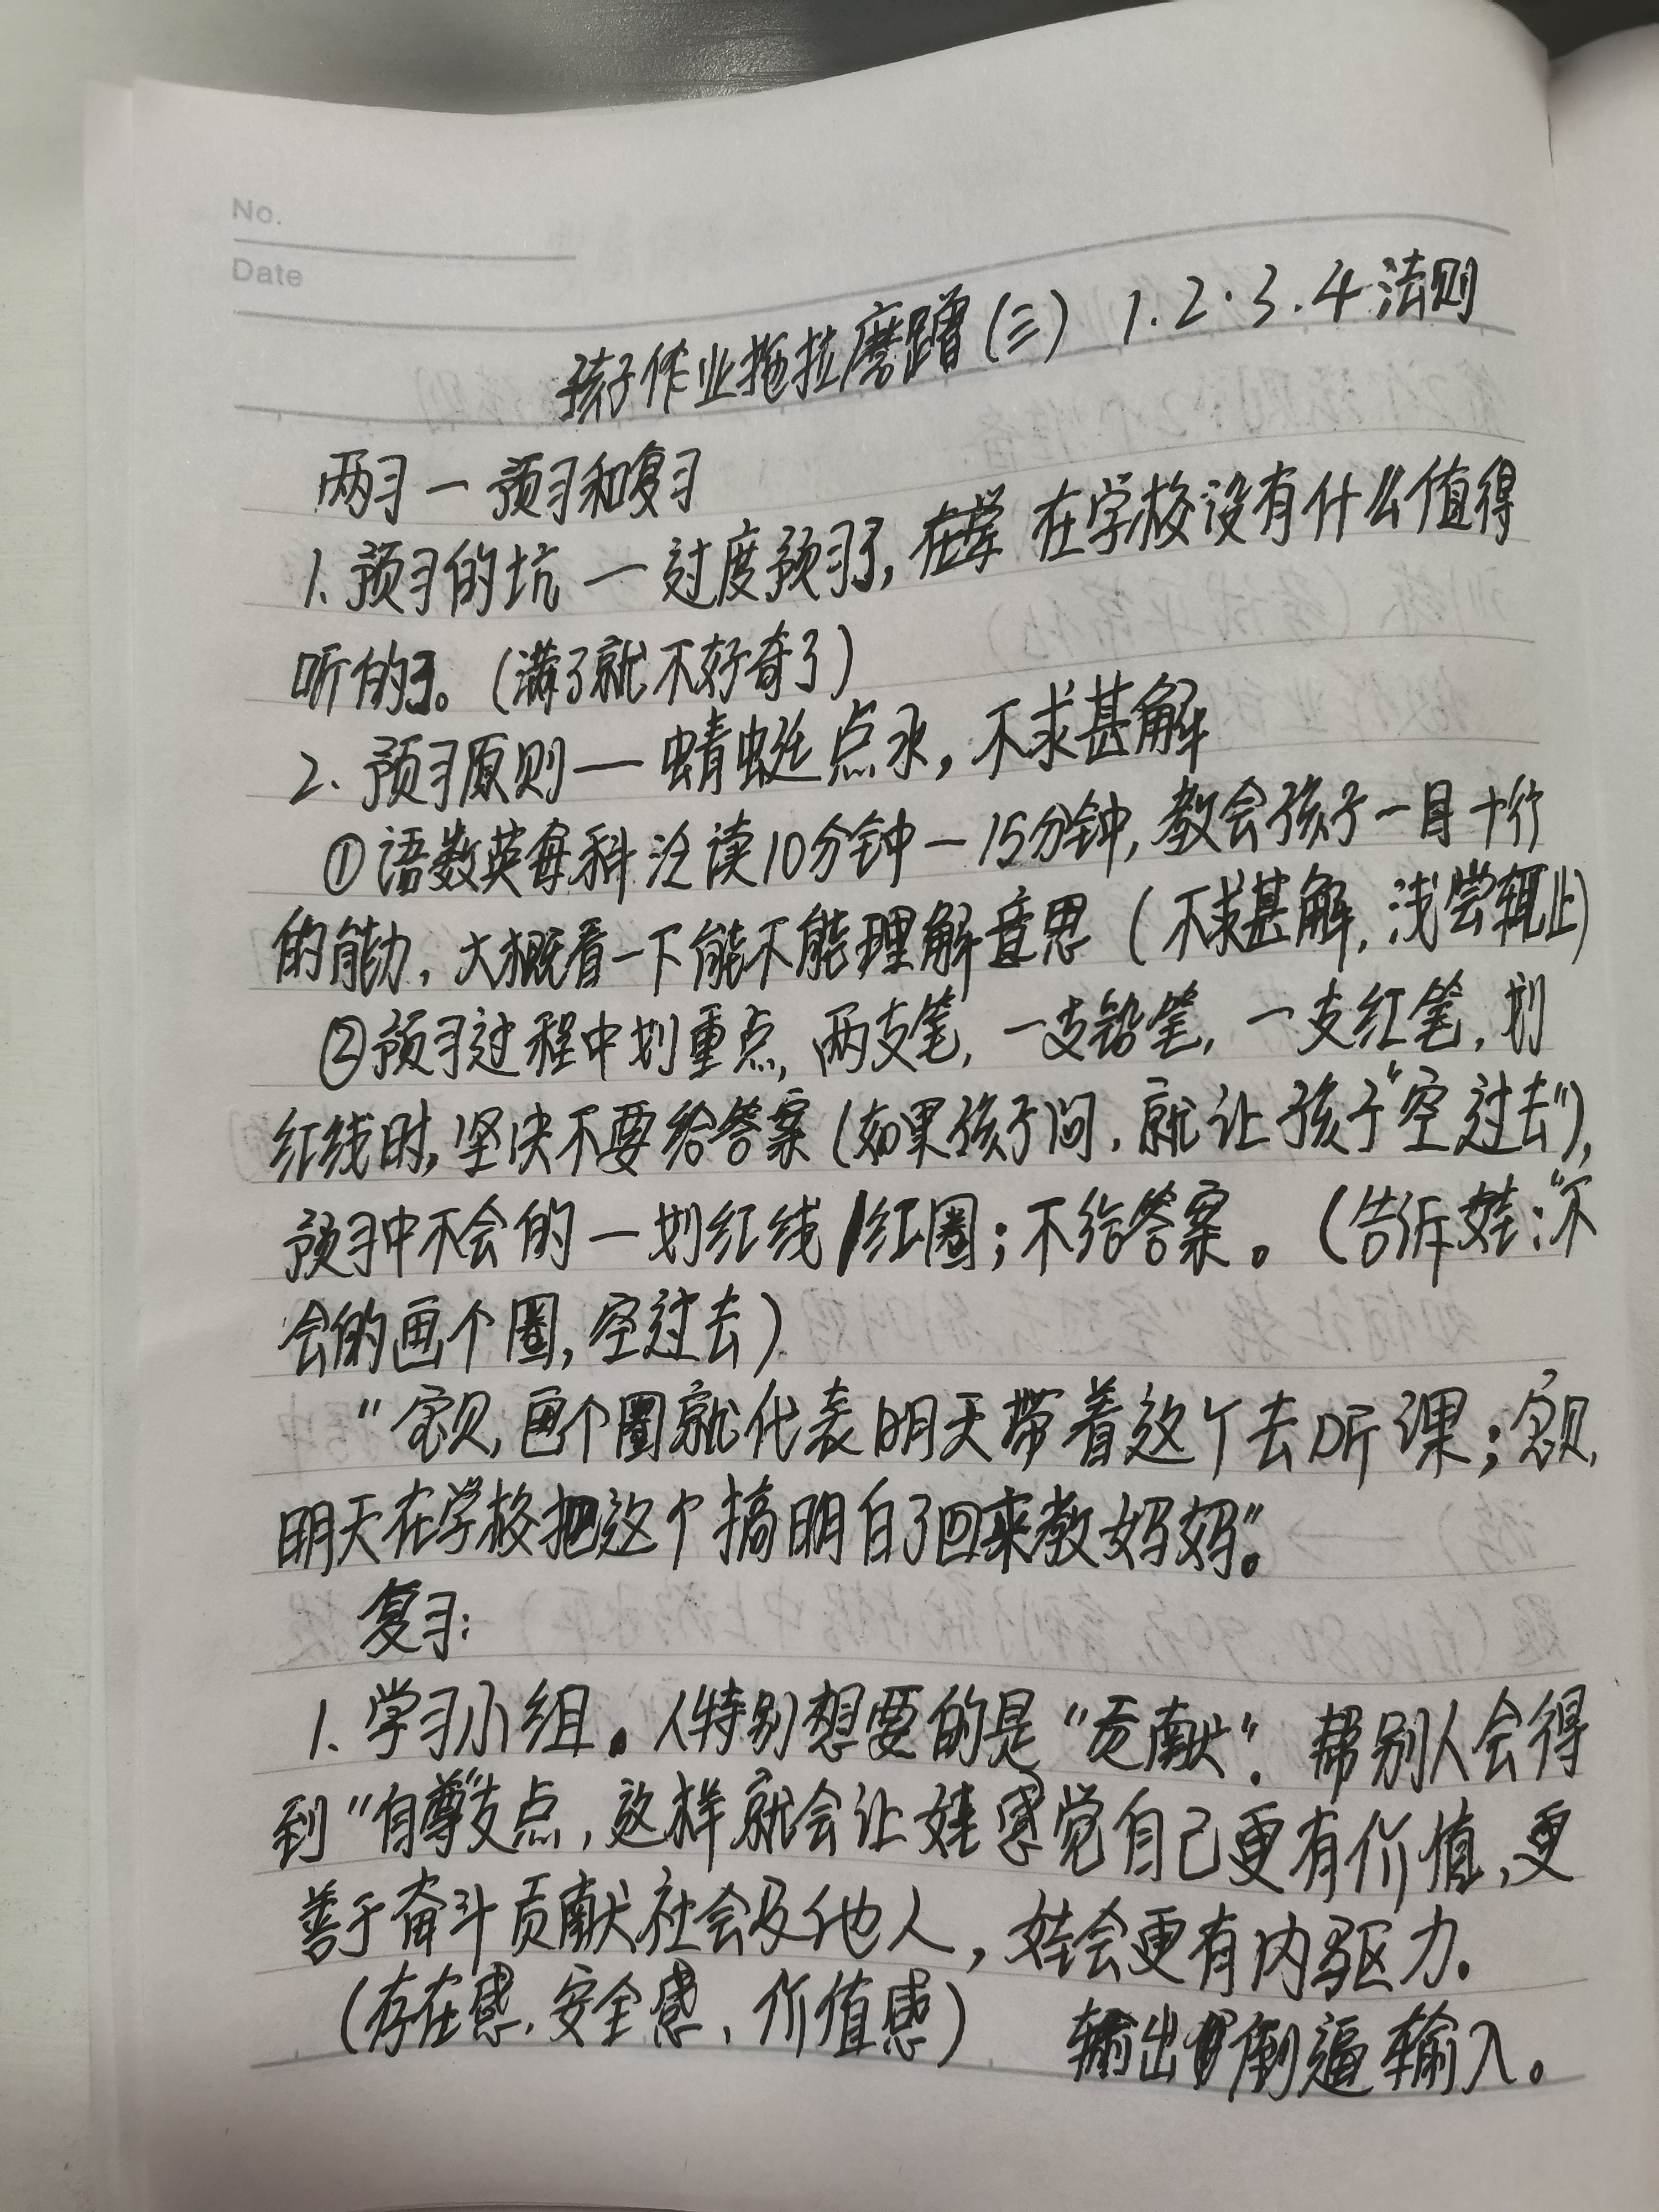 No.
Date
孩子作业拖拉磨蹭(三) 1.2.3.4法则
两习一预习和复习
1.预习的坑一过度预习了,在学 在学校没有什么值得
听的了。(满了就不好奇了)
2、预习原则一蜻蜓点水,不求甚解
①语数英每科泛读10分钟-15分钟,教会孩子一目十行
的能力,大概看一下能不能理解意思(不求甚解,浅尝辄止)
②预习过程中划重点,两支笔,一支铅笔,一支红笔,划
红线时,坚决不要给答案(如果孩子问,就让孩子“空过去”),
预习中不会的一划红线/红圈;不给答案。(告诉娃:“不
会的画个圈,空过去)
“宝贝,画个圈就代表明天带着这个去听课;宝贝,
明天在学校把这个搞明白了回来教妈妈”。
复习:
1.学习小组。人特别想要的是“贡献”.帮别人会得
到“自尊”支点,这样就会让娃感觉自己更有价值,更
善于奋斗贡献社会及他人,娃会更有内驱力.
(存在感、安全感、价值感) 输出倒逼输入。